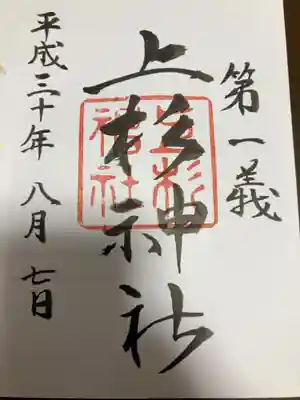 第一義
上杉神社
上杉神社
平成三十年八月七日